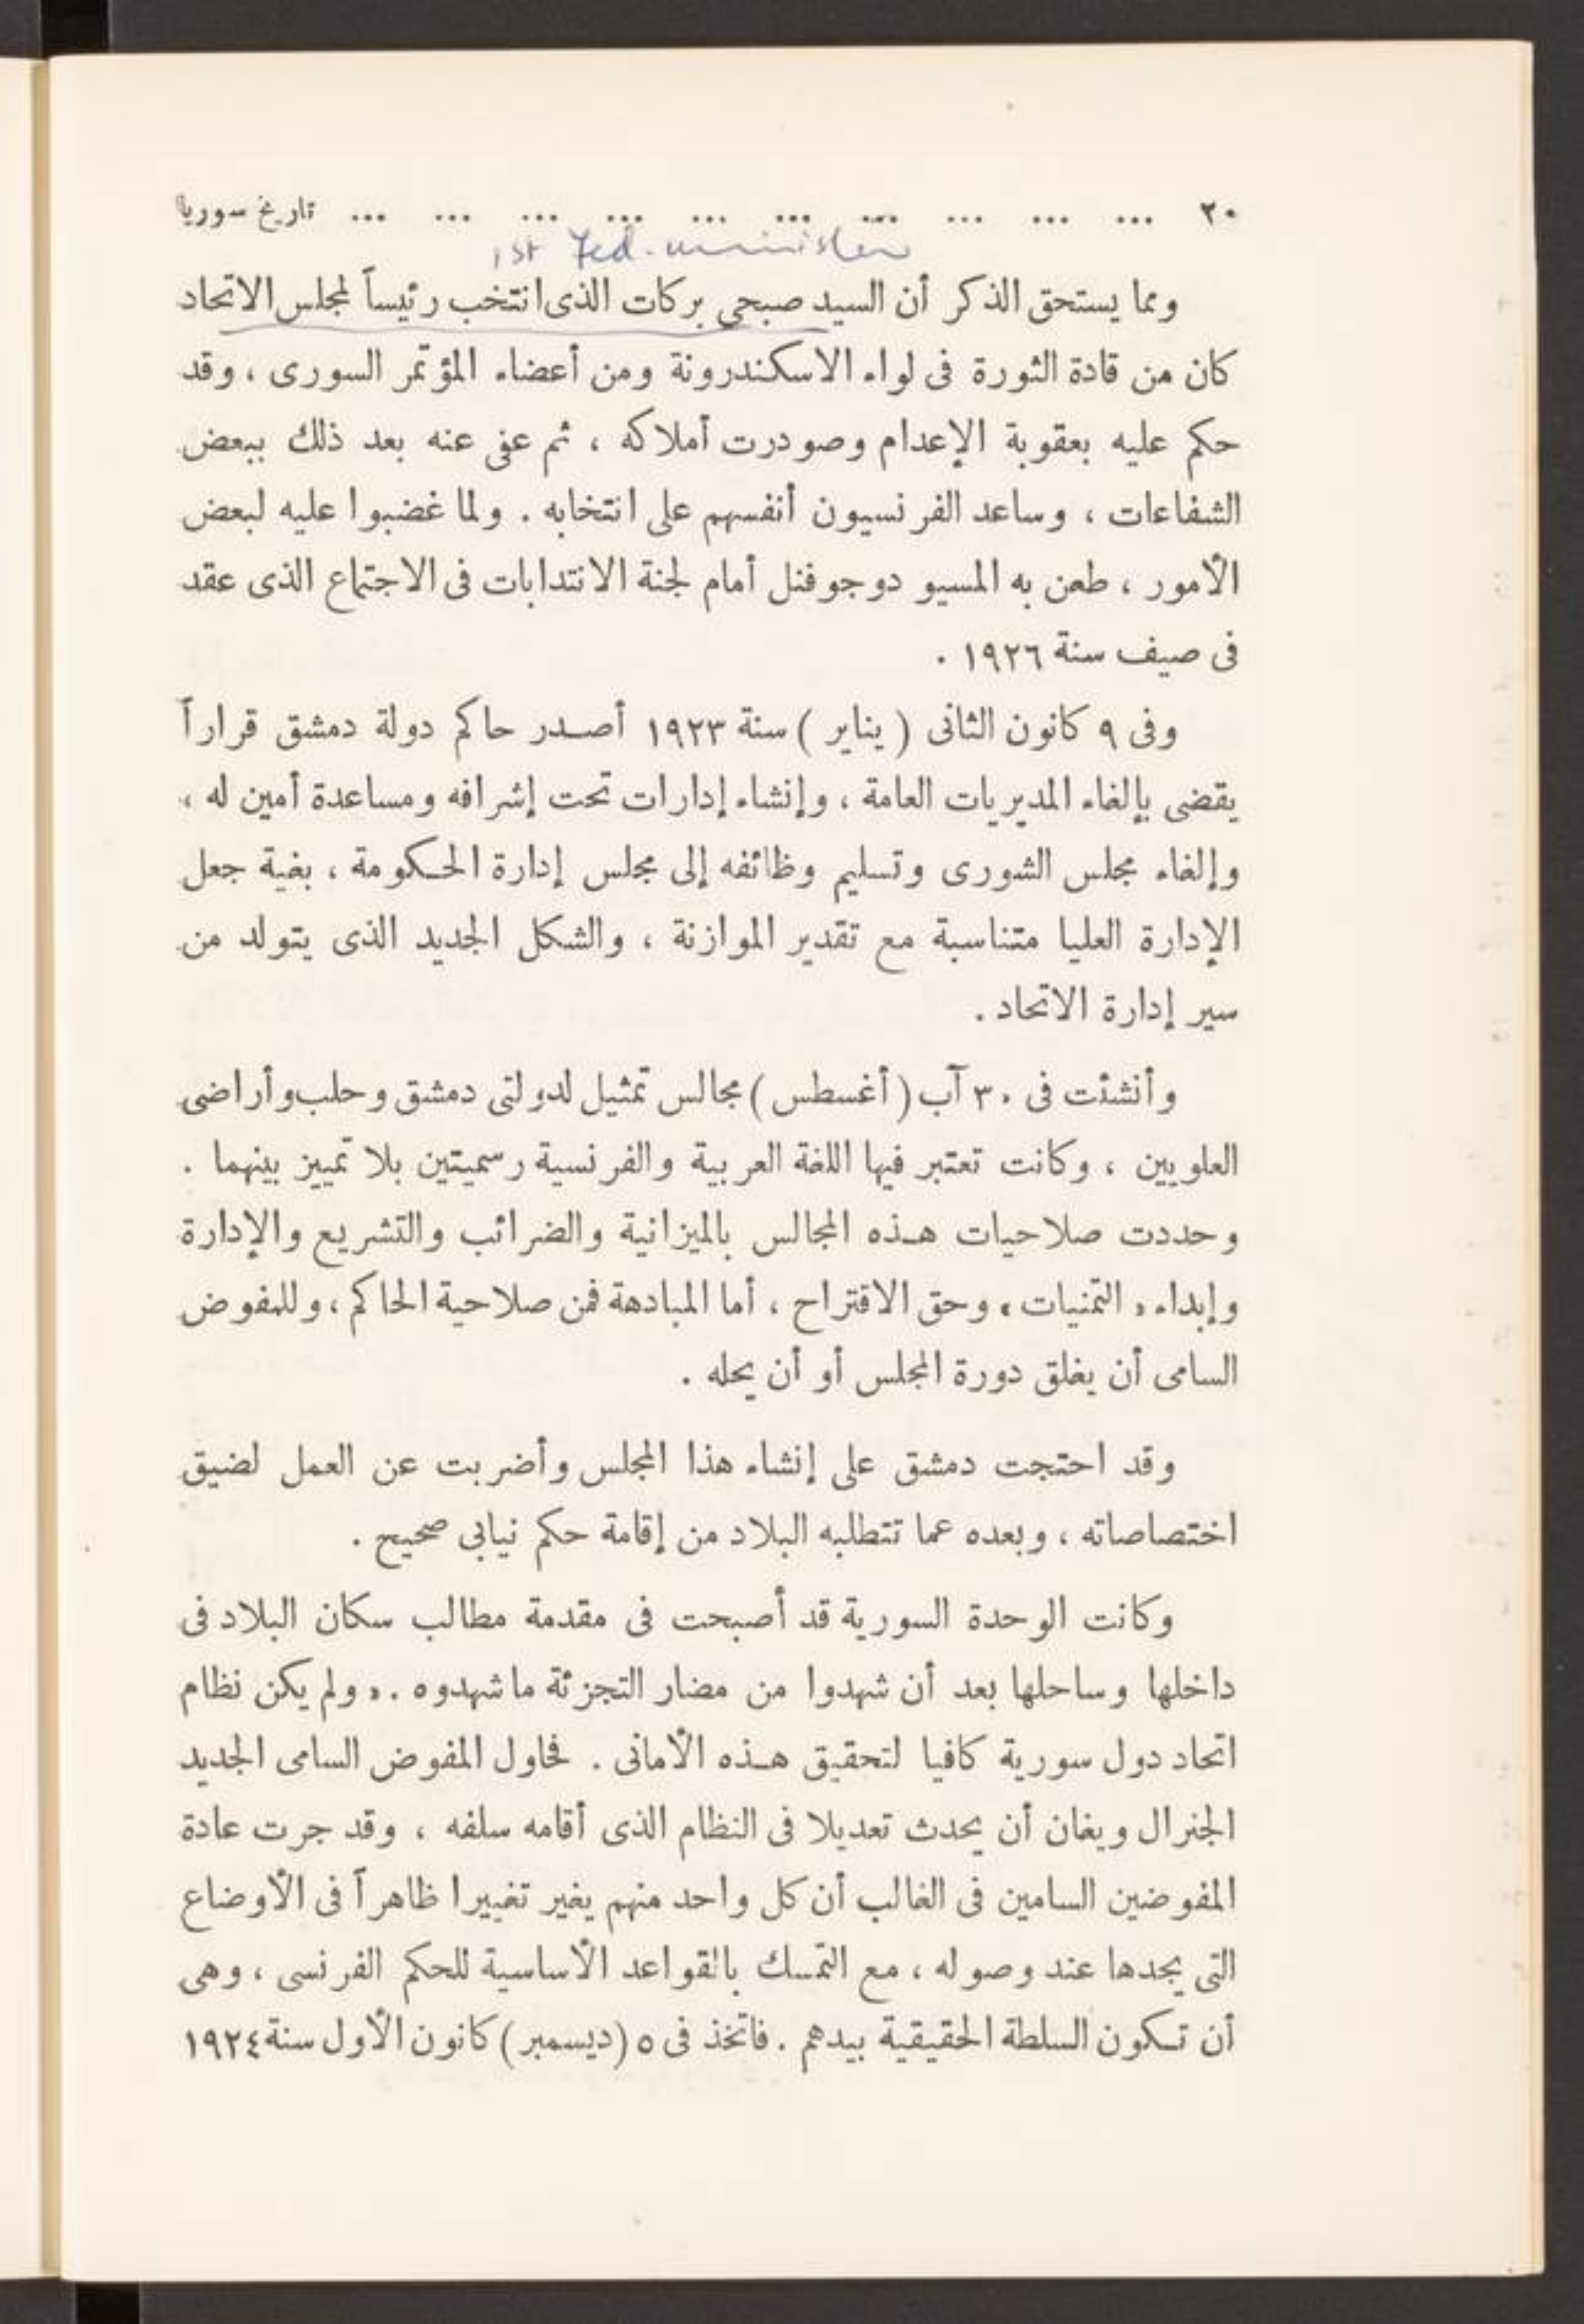 ٢٠ ... ... ... ... ... ... ... ... ... ... تاريخ سوريا
1st Fed. minister
ومما يستحق الذكر أن السيد صبحي بركات الذى انتخب رئيساً لمجلس الاتحاد
كان من قادة الثورة فى لواء الاسكندرونة ومن أعضاء المؤتمر السورى ، وقد
حكم عليه بعقوبة الإعدام وصودرت أملاكه ، ثم عفى عنه بعد ذلك ببعض
الشفاعات ، وساعد الفرنسيون أنفسهم على انتخابه . ولما غضبوا عليه لبعض
الأمور ، طعن به المسيو دوجوفنل أمام لجنة الانتدابات فى الاجتماع الذى عقد
فى صيف سنة ١٩٢٦ .
وفى ٩ كانون الثانى ( يناير ) سنة ١٩٢٣ أصدر حاكم دولة دمشق قراراً
يقضى بإلغاء المديريات العامة ، وإنشاء إدارات تحت إشرافه ومساعدة أمين له ،
وإلغاء مجلس الشورى وتسليم وظائفه إلى مجلس إدارة الحكومة ، بغية جعل
الإدارة العليا متناسبة مع تقدير الموازنة ، والشكل الجديد الذى يتولد من
سير إدارة الاتحاد .
وأنشئت فى ٣٠ آب ( أغسطس ) مجالس تمثيل لدولتى دمشق وحلب وأراضى
العلويين ، وكانت تعتبر فيها اللغة العربية والفرنسية رسميتين بلا تمييز بينهما .
وحددت صلاحيات هذه المجالس بالميزانية والضرائب والتشريع والإدارة
وإبداء « التمنيات » وحق الاقتراح ، أما المبادهة فمن صلاحية الحاكم ، وللمفوض
السامى أن يغلق دورة المجلس أو أن يحله .
وقد احتجت دمشق على إنشاء هذا المجلس وأضربت عن العمل لضيق
اختصاصاته ، وبعده عما تتطلبه البلاد من إقامة حكم نيابى صحيح .
وكانت الوحدة السورية قد أصبحت فى مقدمة مطالب سكان البلاد فى
داخلها وساحلها بعد أن شهدوا من مضار التجزئة ما شهدوه . « ولم يكن نظام
اتحاد دول سورية كافيا لتحقيق هذه الأمانى . فحاول المفوض السامى الجديد
الجنرال ويغان أن يحدث تعديلا فى النظام الذى أقامه سلفه ، وقد جرت عادة
المفوضين السامين فى الغالب أن كل واحد منهم يغير تغييرا ظاهراً فى الأوضاع
التى يجدها عند وصوله ، مع التمسك بالقواعد الأساسية للحكم الفرنسى ، وهى
أن تكون السلطة الحقيقية بيدهم . فاتخذ فى ٥ (ديسمبر) كانون الأول سنة ١٩٢٤